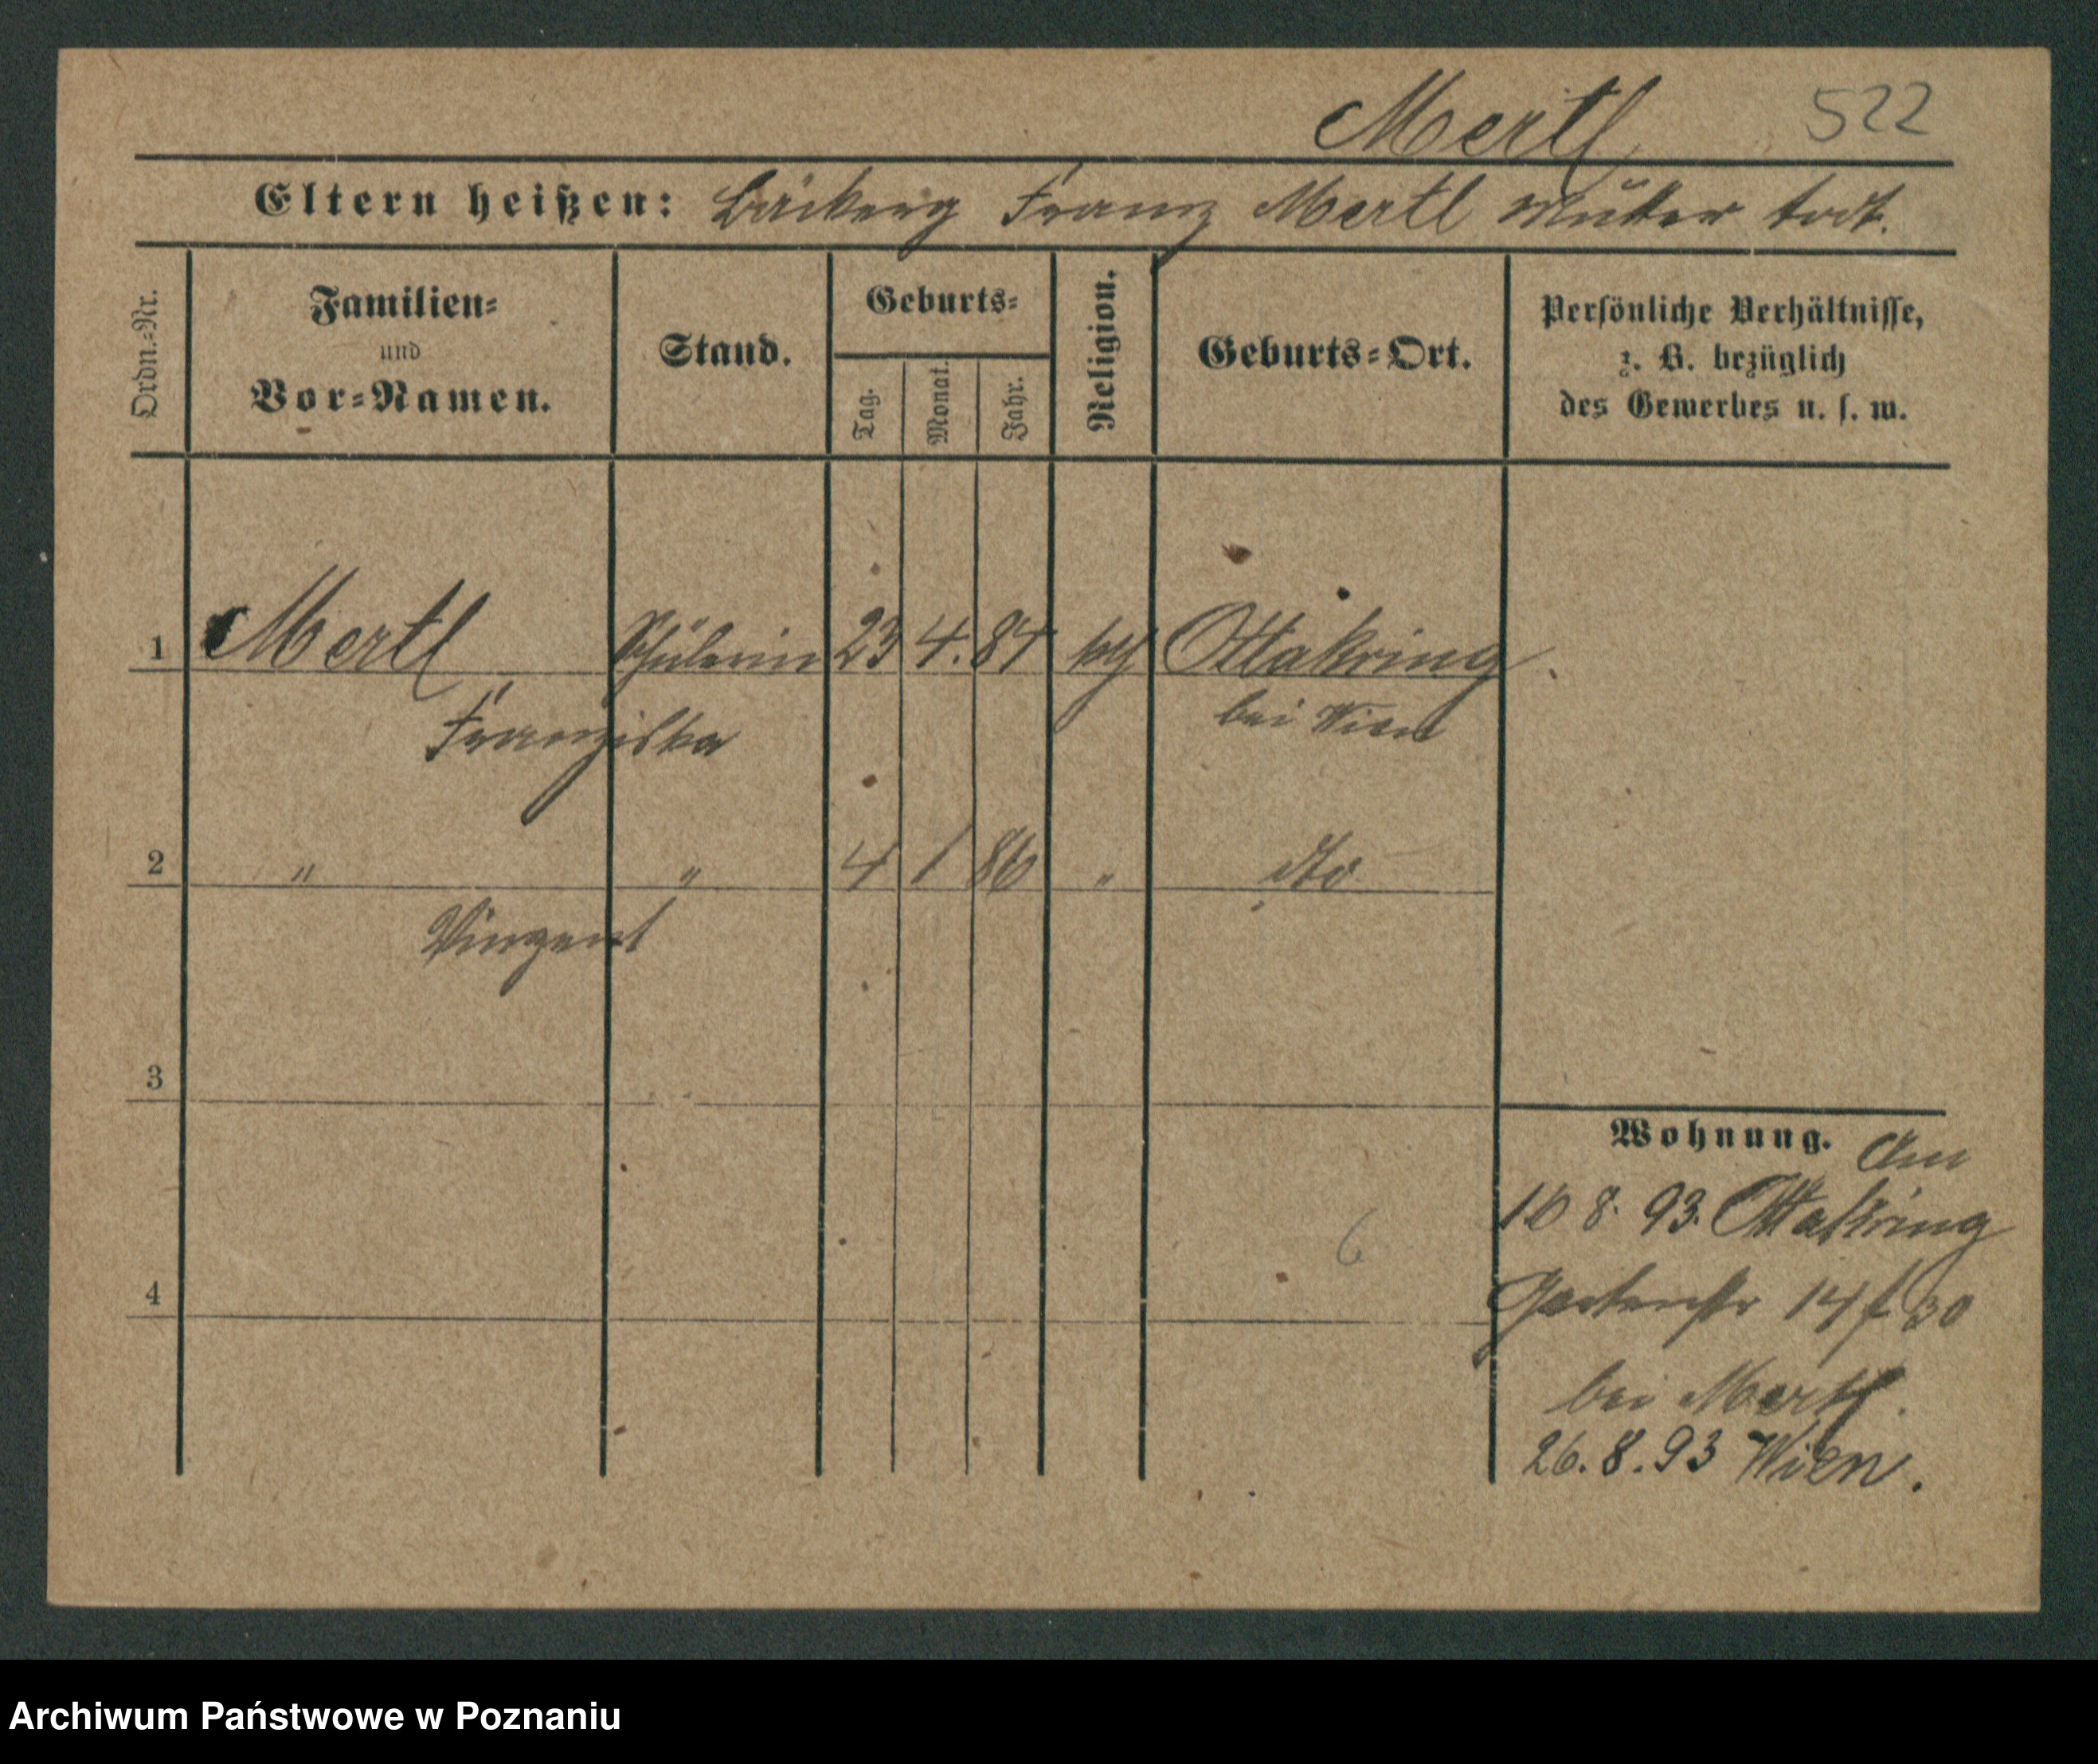 Mertl 522
Eltern heißen: Bäckerg Franz Mertl Mutter todt.
Ordn.=Nr.
Familien=
und
Vor=Namen.
Stand.
Geburts=
Tag.
Monat.
Jahr.
Religion.
Geburts=Ort.
Persönliche Verhältnisse,
z. B. bezüglich
des Gewerbes u. s. w.
1 Mertl Schülerin 23 4. 84 Ottakring
Franziska bei Wien
2 " " 4 1 86 " dto
Vinzent
3
Wohnung. Am
16 8. 93. Ottakring
6
4 Gartenstr 14 f 30
bei Mertl.
26. 8. 93 Wien.
Archiwum Państwowe w Poznaniu